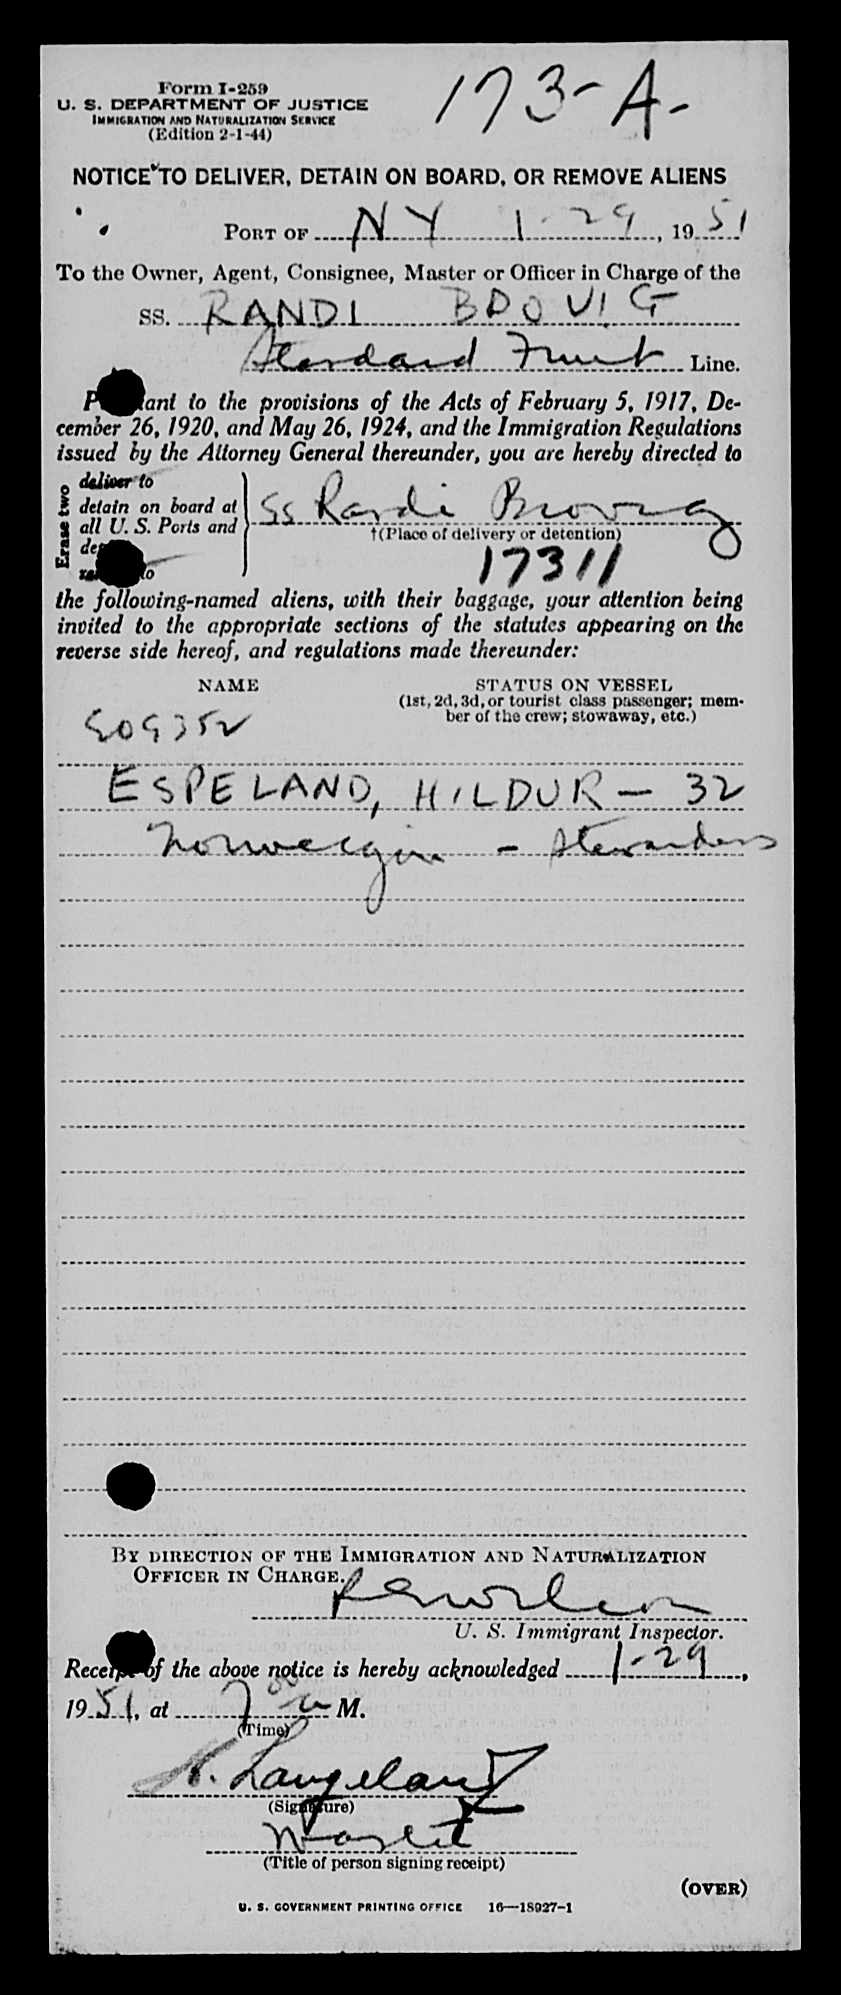 Form I-259
173-A-
U. S. DEPARTMENT OF JUSTICE
IMMIGRATION AND NATURALIZATION SERVICE
(Edition 2-1-44)
NOTICE TO DELIVER, DETAIN ON BOARD, OR REMOVE ALIENS
PORT OF NY 1-29, 1951
To the Owner, Agent, Consignee, Master or Officer in Charge of the
SS. RANDI BROVIG
Standard Fruit Line.
P ant to the provisions of the Acts of February 5, 1917, De-
cember 26, 1920, and May 26, 1924, and the Immigration Regulations
issued by the Attorney General thereunder, you are hereby directed to
Erase two
deliver to
detain on board at
all U. S. Ports and
de
to
SS Randi Brovig
†(Place of delivery or detention)
17311
the following-named aliens, with their baggage, your attention being
invited to the appropriate sections of the statutes appearing on the
reverse side hereof, and regulations made thereunder:
NAME
STATUS ON VESSEL
(1st, 2d, 3d, or tourist class passenger; mem-
ber of the crew; stowaway, etc.)
909352
ESPELAND, HILDUR - 32
Norwegian - Stewardess
BY DIRECTION OF THE IMMIGRATION AND NATURALIZATION
OFFICER IN CHARGE.
U. S. Immigrant Inspector.
Receipt of the above notice is hereby acknowledged 1-29,
1951, at 7 00 a M.
(Time)
N. Langeland
(Signature)
(Title of person signing receipt)
(OVER)
U. S. GOVERNMENT PRINTING OFFICE 16—18927-1